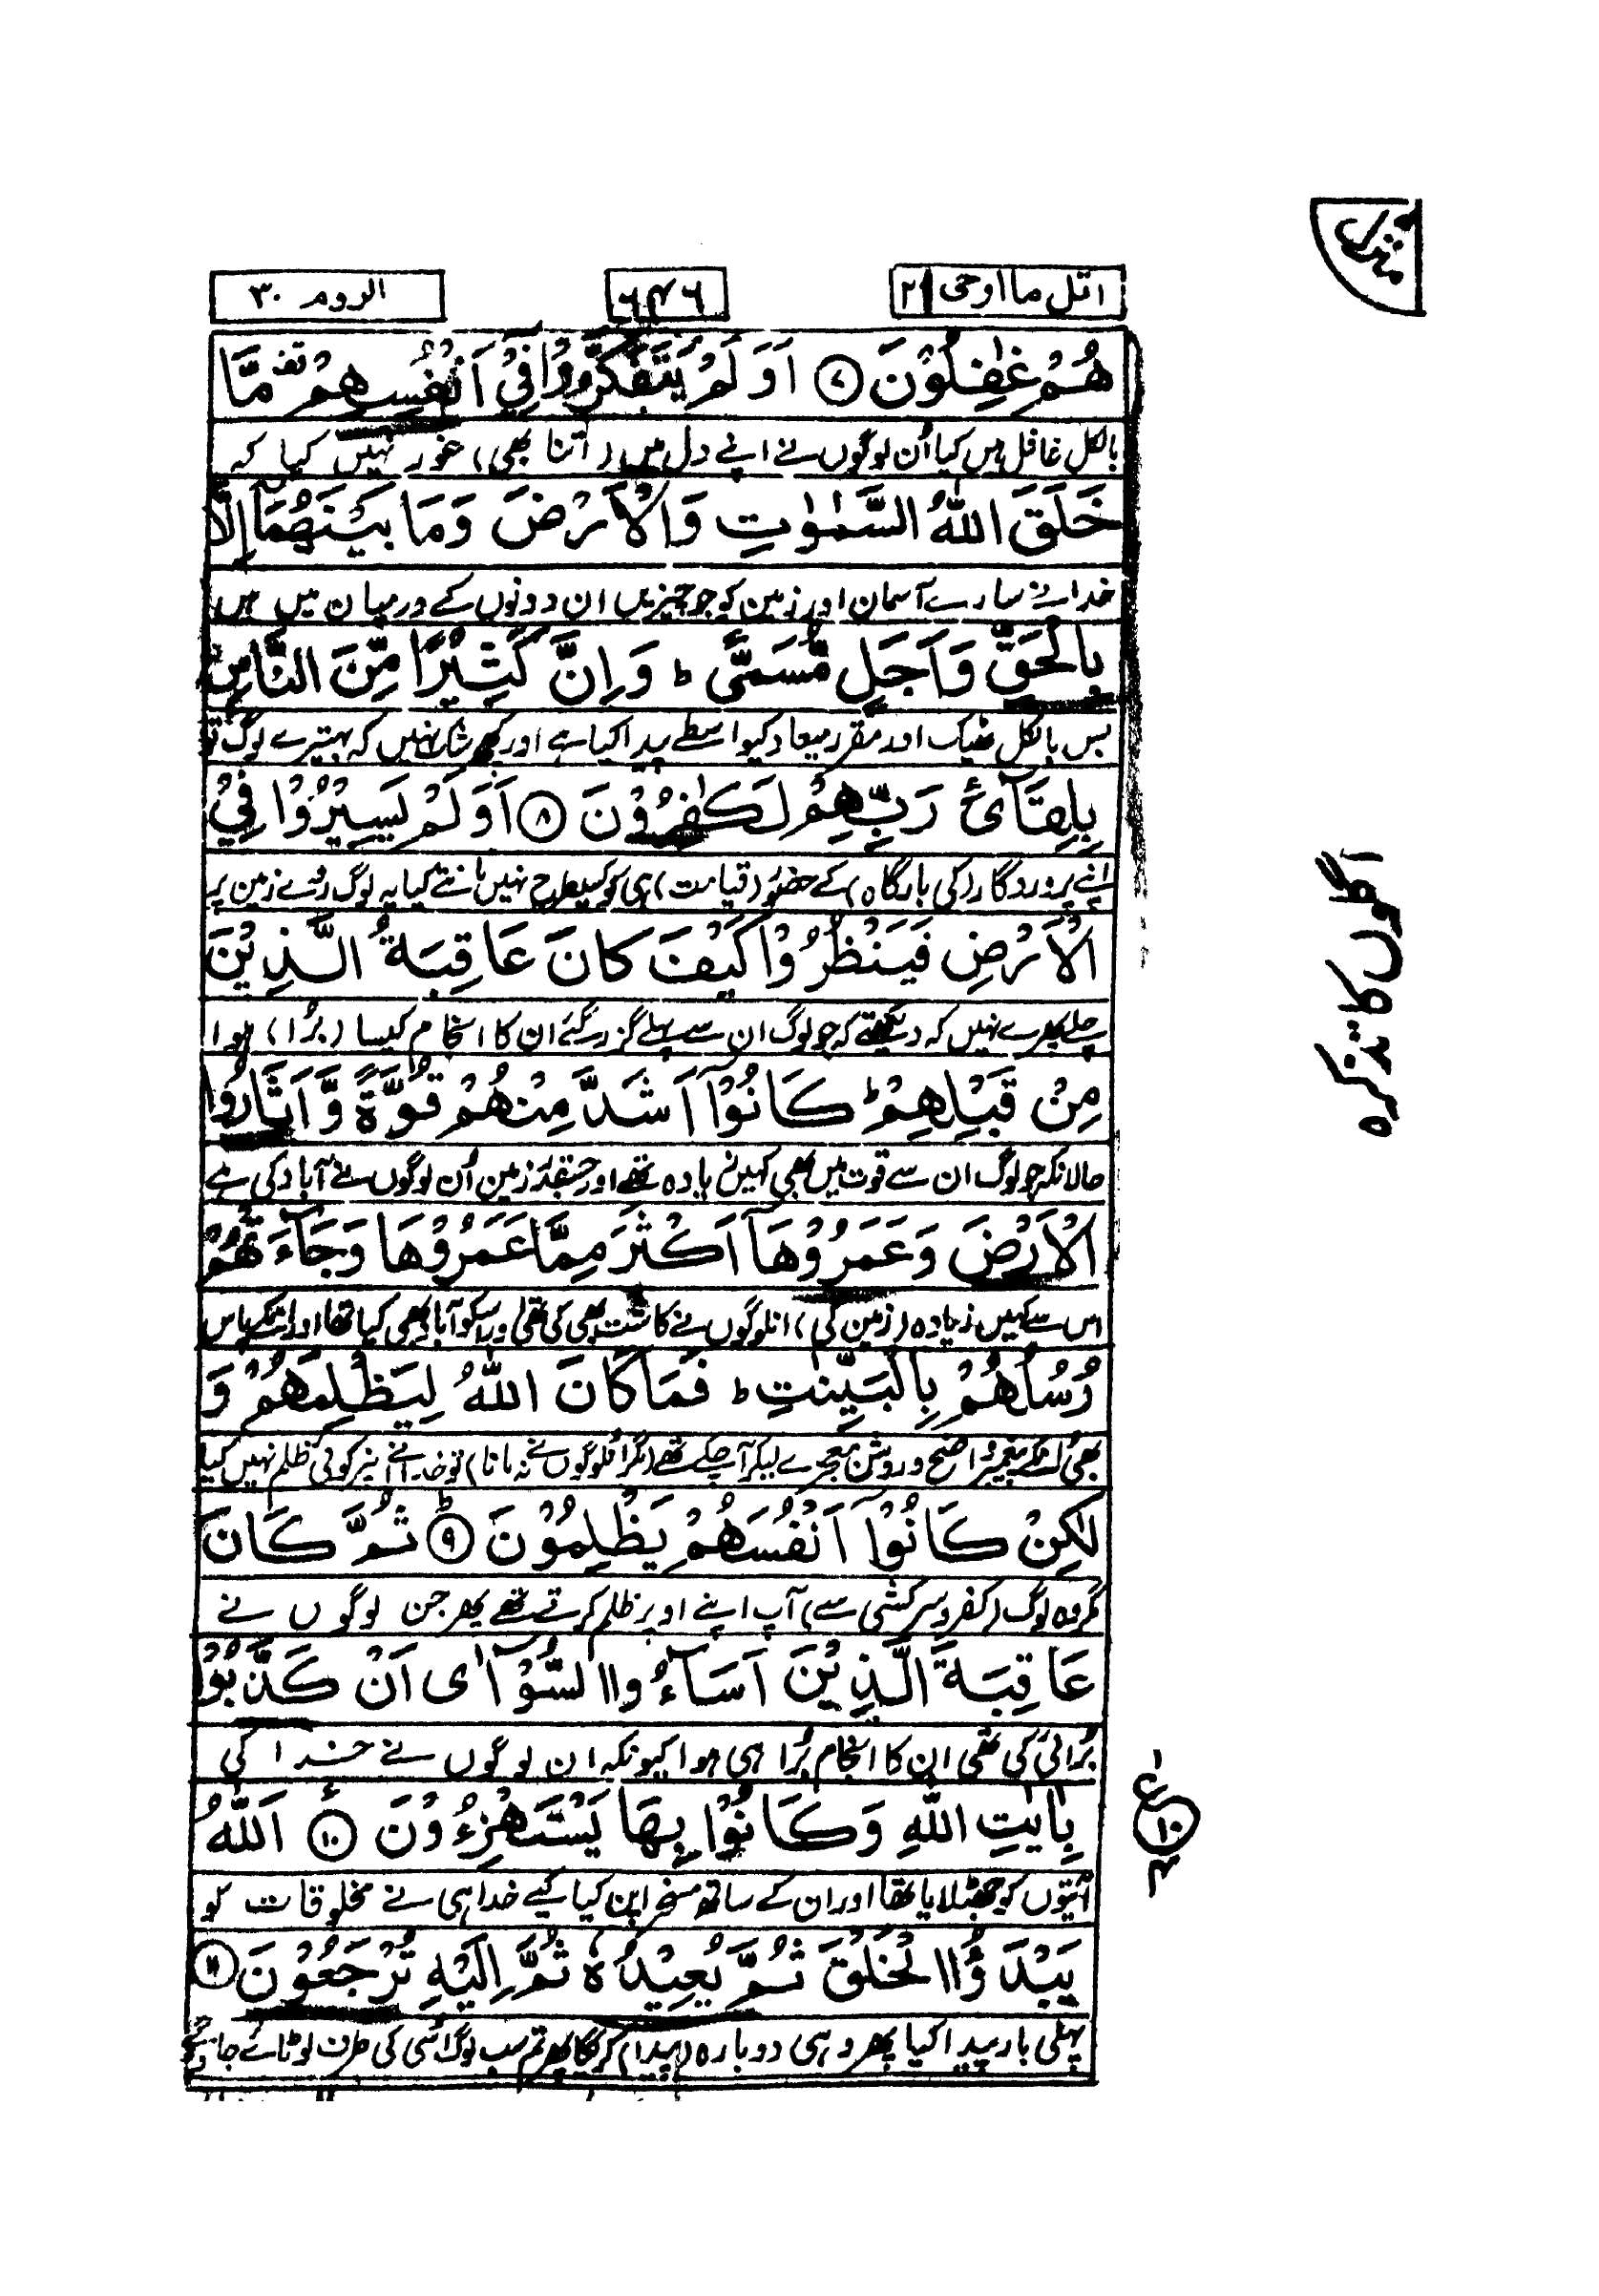 اتل ما اوحی ۲۱
۶۴۶
الروم ۳۰
هُمْ غٰفِلُوْنَ ﴿۷﴾ اَوَ لَمْ يَتَفَكَّرُوْا فِيْۤ اَنْفُسِهِمْ قف مَّا
بالکل غافل ہیں کیا اُن لوگوں نے اپنے دل میں (اتنا بھی) غور نہیں کیا کہ
خَلَقَ اللّٰهُ السَّمٰوٰتِ وَالْاَرْضَ وَمَا بَيْنَهُمَاۤ اِلَّا
خدا نے سارے آسمان اور زمین کو جو چیزیں ان دونوں کے درمیان میں ہیں
بِالْحَقِّ وَاَجَلٍ مُّسَمًّى ؕ وَاِنَّ كَثِيْرًا مِّنَ النَّاسِ
بس بالکل ٹھیک اور مقرر میعاد کیواسطے پیدا کیا ہے اور کچھ شک نہیں کہ بہتیرے لوگ تو
بِلِقَآئِ رَبِّهِمْ لَكٰفِرُوْنَ ﴿۸﴾ اَوَ لَمْ يَسِيْرُوْا فِي
اپنے پروردگار (کی بارگاہ) کے حضور (قیامت) ہی کو کسیطرح نہیں مانتے کیا یہ لوگ روئے زمین پر
الْاَرْضِ فَيَنْظُرُوْا كَيْفَ كَانَ عَاقِبَةُ الَّذِيْنَ
چلے پھرے نہیں کہ دیکھتے کہ جو لوگ ان سے پہلے گزر گئے ان کا انجام کیسا (برُا) ہوا
مِنْ قَبْلِهِمْ ؕ كَانُوْۤا اَشَدَّ مِنْهُمْ قُوَّةً وَّاَثَارُوا
حالانکہ جو لوگ ان سے قوت میں بھی کہیں زیادہ تھے اور جسقدر زمین اُن لوگوں نے آباد کی ہے
الْاَرْضَ وَعَمَرُوْهَاۤ اَكْثَرَ مِمَّا عَمَرُوْهَا وَجَآءَتْهُمْ
اس سے کہیں زیادہ (زمین کی) انلوگوں نے کاشت بھی کی تھی اور اسکو آباد بھی کیا تھا اور انکے پاس
رُسُلُهُمْ بِالْبَيِّنٰتِ ؕ فَمَا كَانَ اللّٰهُ لِيَظْلِمَهُمْ وَ
بھی انکے پیغمبر واضح و روشن معجزے لیکر آ چکے تھے (مگر انلوگوں نے نہ مانا) تو خدا نے انپر کوئی ظلم نہیں کیا
لٰكِنْ كَانُوْۤا اَنْفُسَهُمْ يَظْلِمُوْنَ ﴿۹﴾ ؕ ثُمَّ كَانَ
مگر وہ لوگ (کفر و سرکشی سے) آپ اپنے اوپر ظلم کرتے تھے پھر جن لوگوں نے
عَاقِبَةَ الَّذِيْنَ اَسَآءُوا السُّوْٓاٰى اَنْ كَذَّبُوْا
بُرائی کی تھی ان کا انجام بُرا ہی ہوا کیونکہ ان لوگوں نے خدا کی
بِاٰيٰتِ اللّٰهِ وَكَانُوْا بِهَا يَسْتَهْزِءُوْنَ ﴿۱۰﴾ اَللّٰهُ
آیتوں کو جھٹلایا تھا اور ان کے ساتھ مسخراپن کیا کیے خدا ہی نے مخلوقات کو
يَبْدَؤُا الْخَلْقَ ثُمَّ يُعِيْدُهٗ ثُمَّ اِلَيْهِ تُرْجَعُوْنَ ﴿۱۱﴾
پہلی بار پیدا کیا پھر وہی دوبارہ (پیدا) کریگا پھر تم سب لوگ اُسی کی طرف لوٹائے جاؤ گے
منزل
اگلوں کا تذکرہ
ع
۱۰
۴